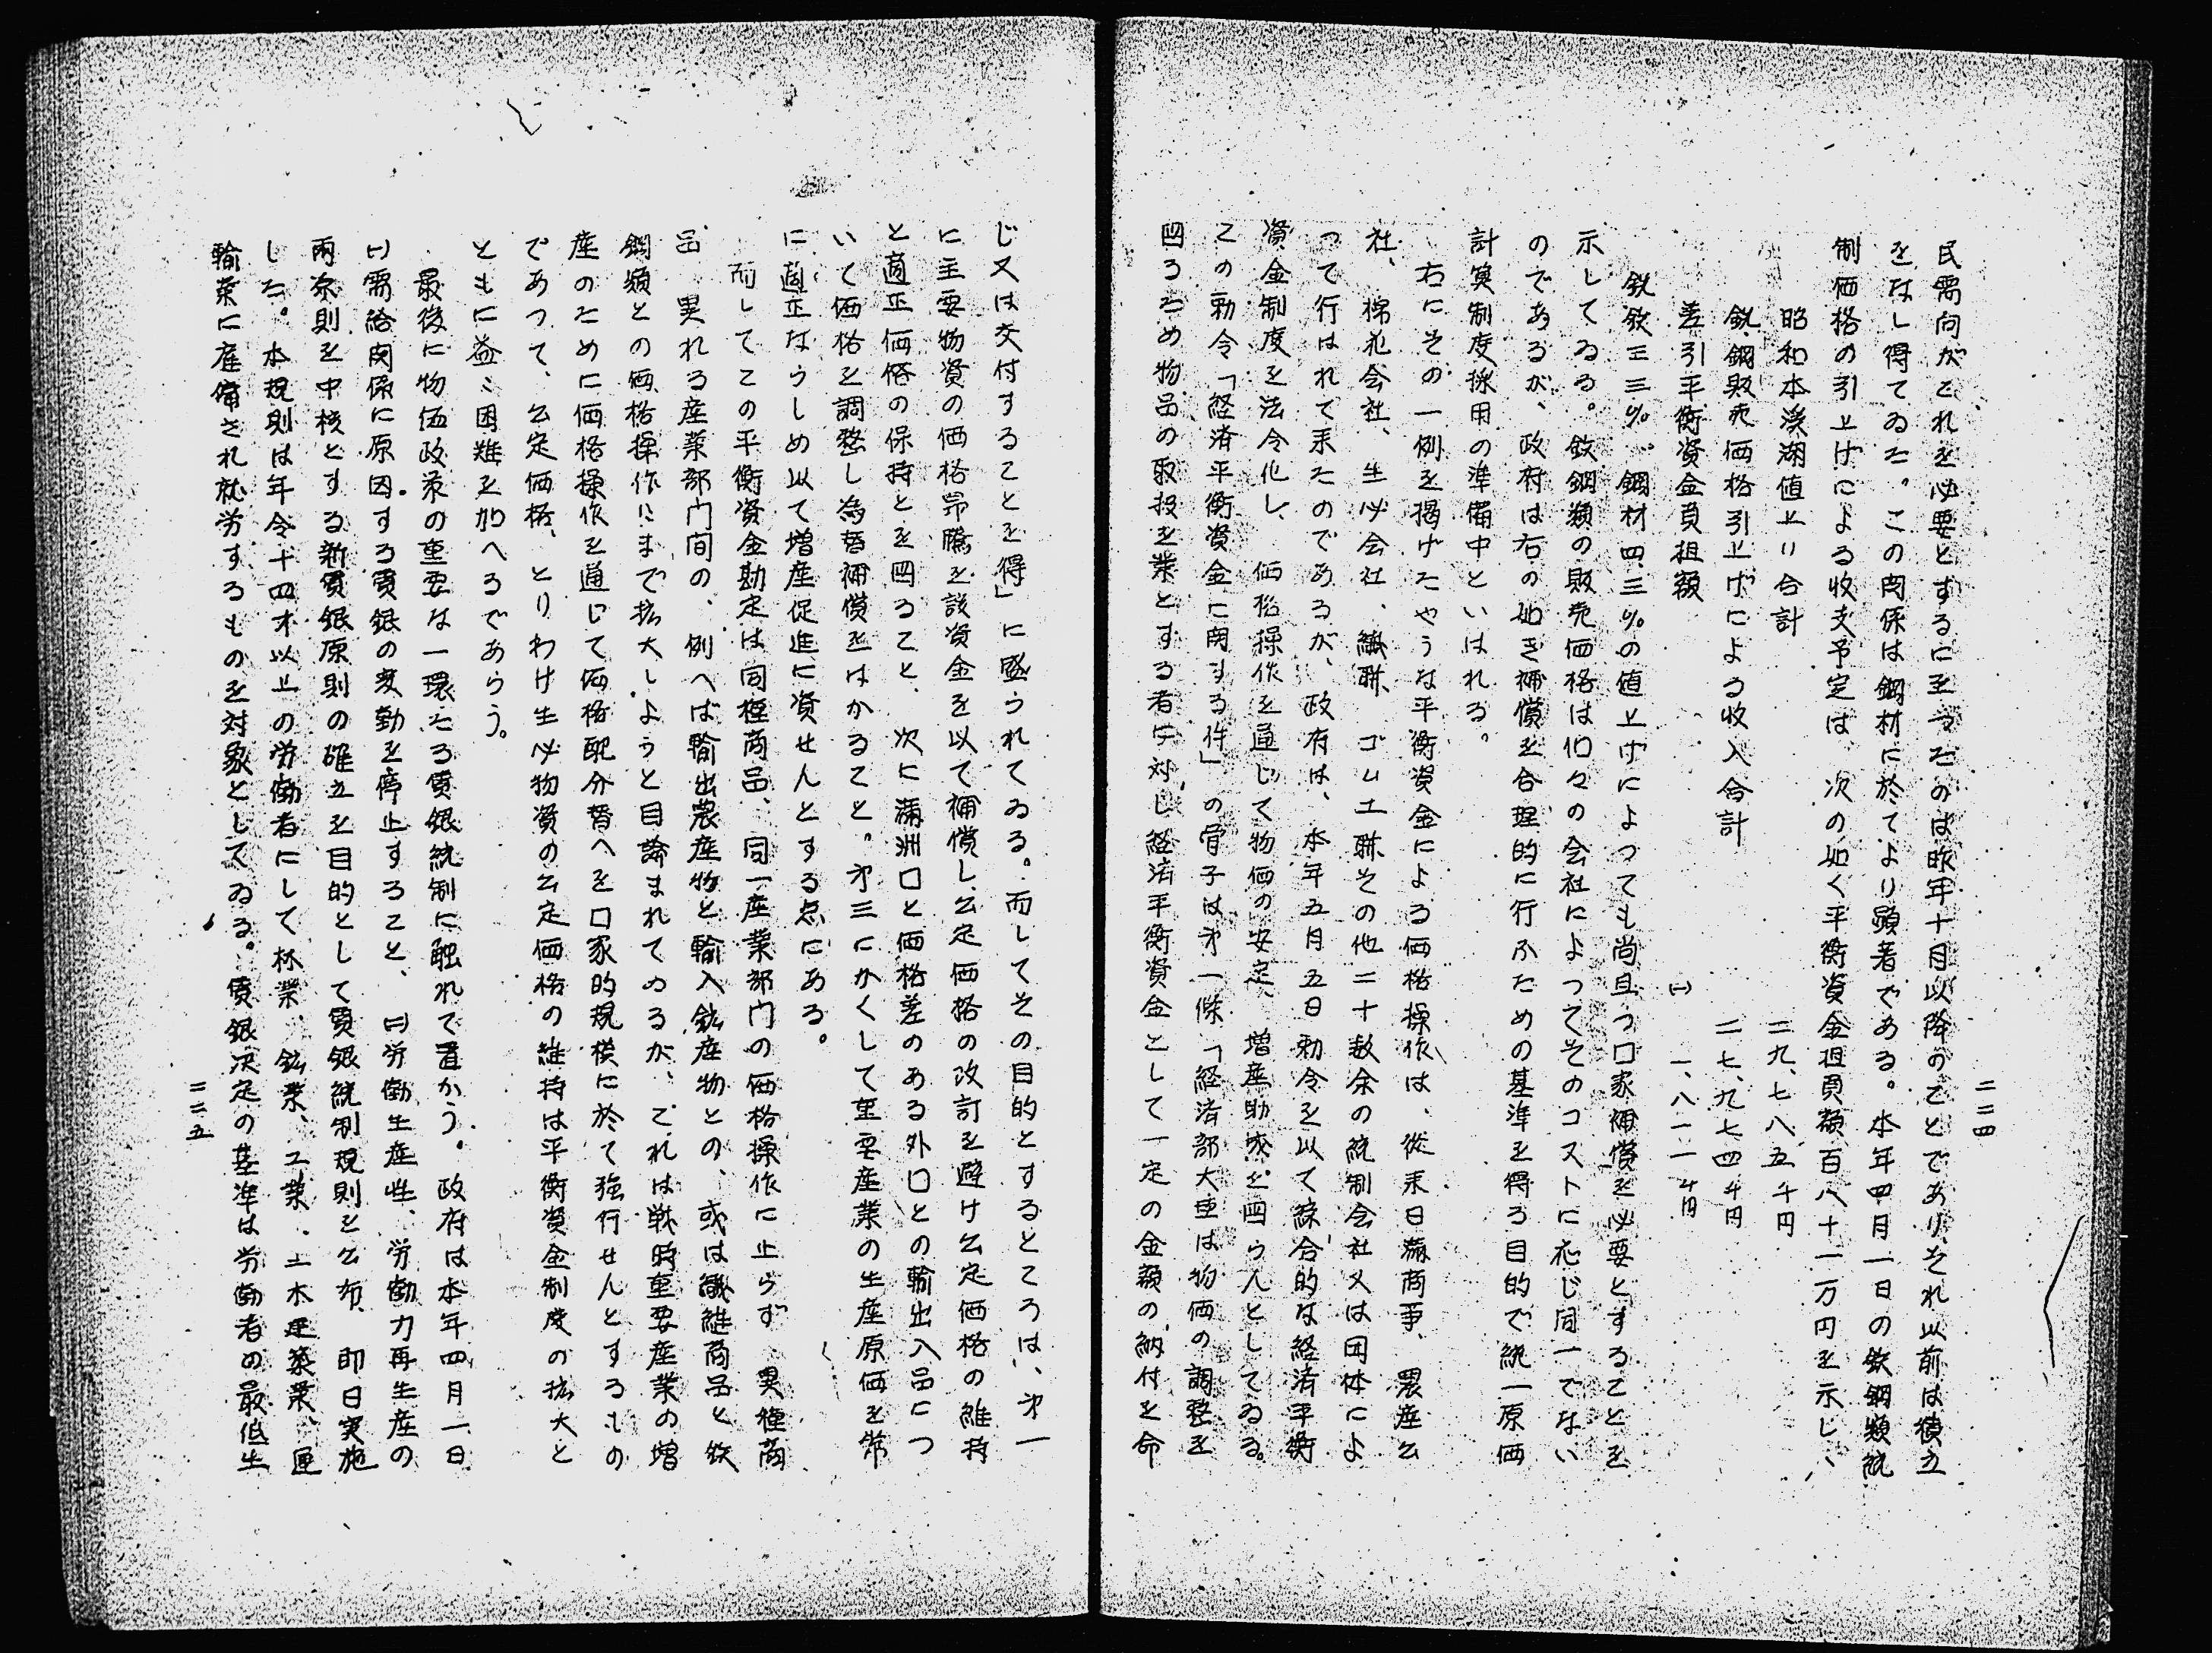 二二四
民需向がこれを必要とするに至つたのは昨年十月以降のことであり、それ以前は積立
をなし得てゐた。この関係は鋼材に於てより顕著である。本年四月一日の鉄鋼類統
制価格の引上げによる收支予定は、次の如く平衡資金担負額百八十一万円を示し、
昭和本溪湖値上り合計　二九、七八五千円
銑、鋼販売価格引上げによる收入合計　二七、九七四千円
差引平衡資金負担額　(一)　一、八一一千円
銑鉄三三％、鋼材四三％の値上げによつても尚且つ口家補償を必要とすることを
示してゐる。鉄鋼類の販売価格は個々の会社によつてそのコストに応じ同一でない
のであるが、政府は右の如き補償を合理的に行ふための基準を得る目的で統一原価
計算制度採用の準備中といはれる。
右にその一例を掲げたやうな平衡資金による価格操作は、從来日滿商事、農産公
社、棉花会社、生必会社、繊聯、ゴム工聯その他二十数余の統制会社又は団体によ
つて行はれて来たのであるが、政府は、本年五月五日勅令を以て綜合的な経済平衡
資金制度を法令化し、価格操作を通じて物価の安定、増産助成を図らんとしてゐる。
この勅令「経済平衡資金に関する件」の骨子は才一條「経済部大臣は物価の調整を
図るため物品の取扱を業とする者に対し経済平衡資金として一定の金額の納付を命
じ又は交付することを得」に盛られてゐる。而してその目的とするところは、才一
に主要物資の価格昂騰を該資金を以て補償し公定価格の改訂を避け公定価格の維持
と適正価格の保持とを図ること、次に滿洲口と価格差のある外口との輸出入品につ
いて価格を調整し為替補償をはかること。才三にかくして重要産業の生産原価を常
に適正ならしめ以て増産促進に資せんとする点にある。
而してこの平衡資金勘定は同種商品、同一産業部門の価格操作に止らず、異種商
品、異れる産業部門間の、例へば輸出農産物と輸入鉱産物との、或は繊維商品と鉄
鋼類との価格操作にまで拡大しようと目論まれてゐるが、これは戦時重要産業の増
産のために価格操作を通じて価格配分替へを口家的規模に於て強行せんとするもの
であつて、公定価格、とりわけ生必物資の公定価格の維持は平衡資金制度の拡大と
ともに益〻困難を加へるであらう。
最後に物価政策の重要な一環たる賃銀統制に触れて置かう。政府は本年四月一日
(一)需給関係に原因する賃銀の変動を停止すること、(二)労働生産性、労働力再生産の
両原則を中核とする新賃銀原則の確立を目的として賃銀統制規則を公布、即日実施
した。本規則は年令十四才以上の労働者にして林業、鉱業、工業、土木建築業、運
輸業に雇傭され就労するものを対象としてゐる。賃銀決定の基準は労働者の最低生
二二五